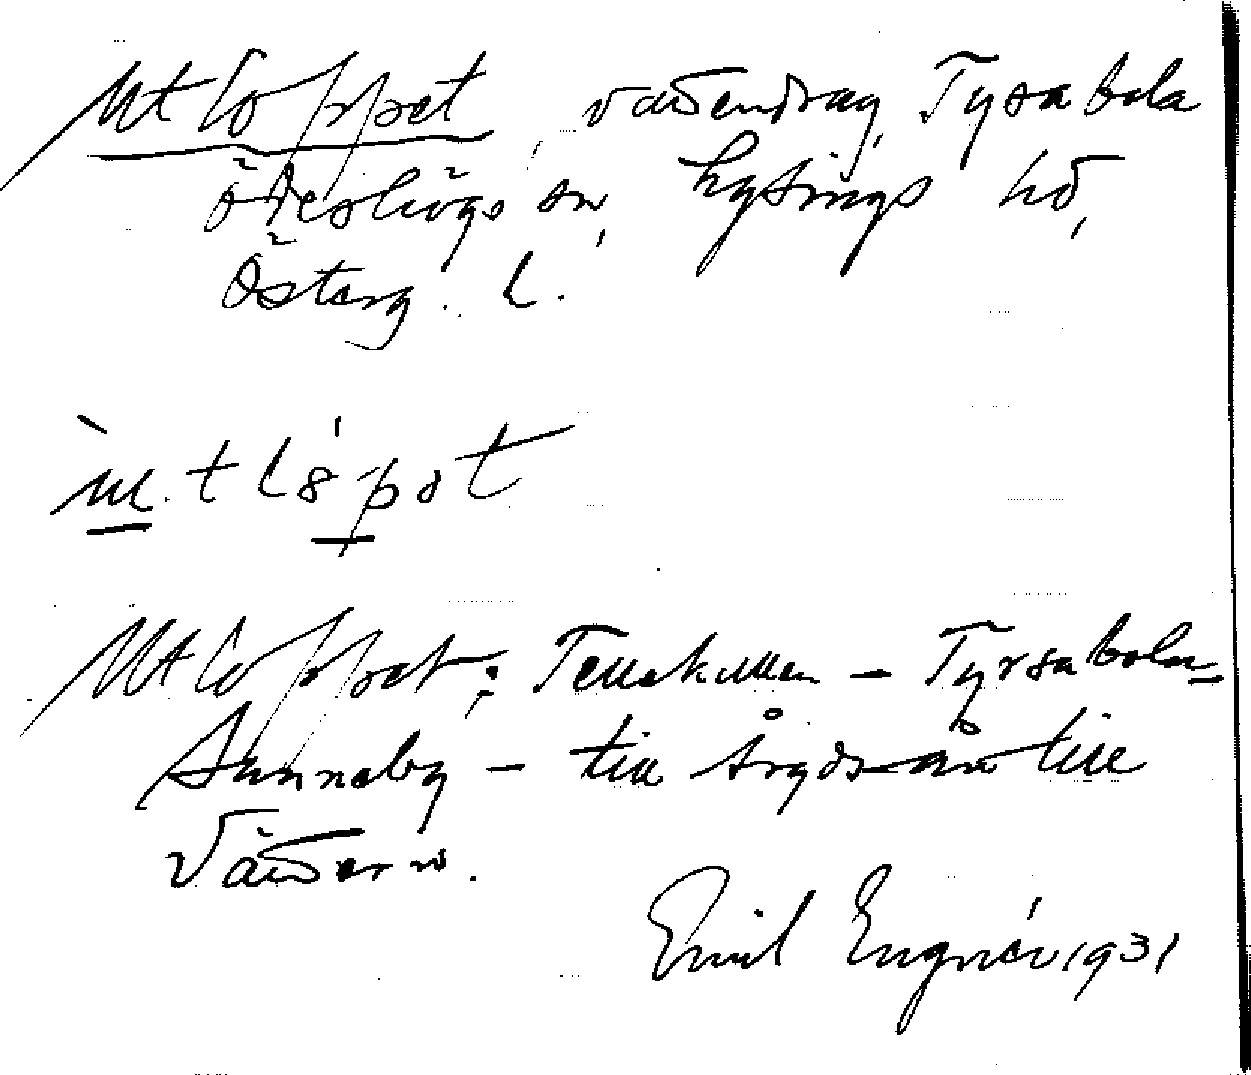 Utloppet, vattendrag, Tyrsabola
Ödeshögs sn, Lysings hd,
Österg. L.
ùtlópət
Utloppet: – Tyrsabola–
Sunneby – till till
Vättern.
Emil Engnér 1931